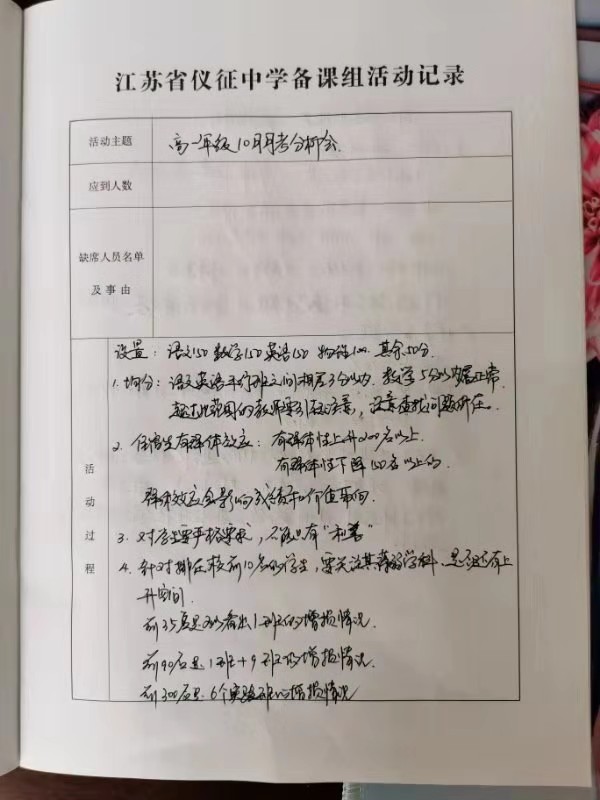 江苏省仪征中学备课组活动记录
活动主题 高一年级10月月考分析会.
应到人数
缺席人员名单
及事由
活动过程
设置: 语文150 数学150 英语150 物理100. 其余50分.
1. 均分: 语文英语平行班之间相差3分以内. 数学5分以内属正常.
超过此范围的教师要引起注意, 注意查找问题所在.
2. 任高生有群体效应: 有群体性上升200名以上.
有群体性下降150名以上的.
群体效应会影响成绩和价值取向.
3. 对学生要严格要求, 不能只有“和善”
4. 针对排在校前10名的学生, 要关注其薄弱学科, 是否还有上
升空间.
前35应是可以看出1班的增损情况.
前90应是1班+9班的增损情况.
前300应是6个实验班的增损情况